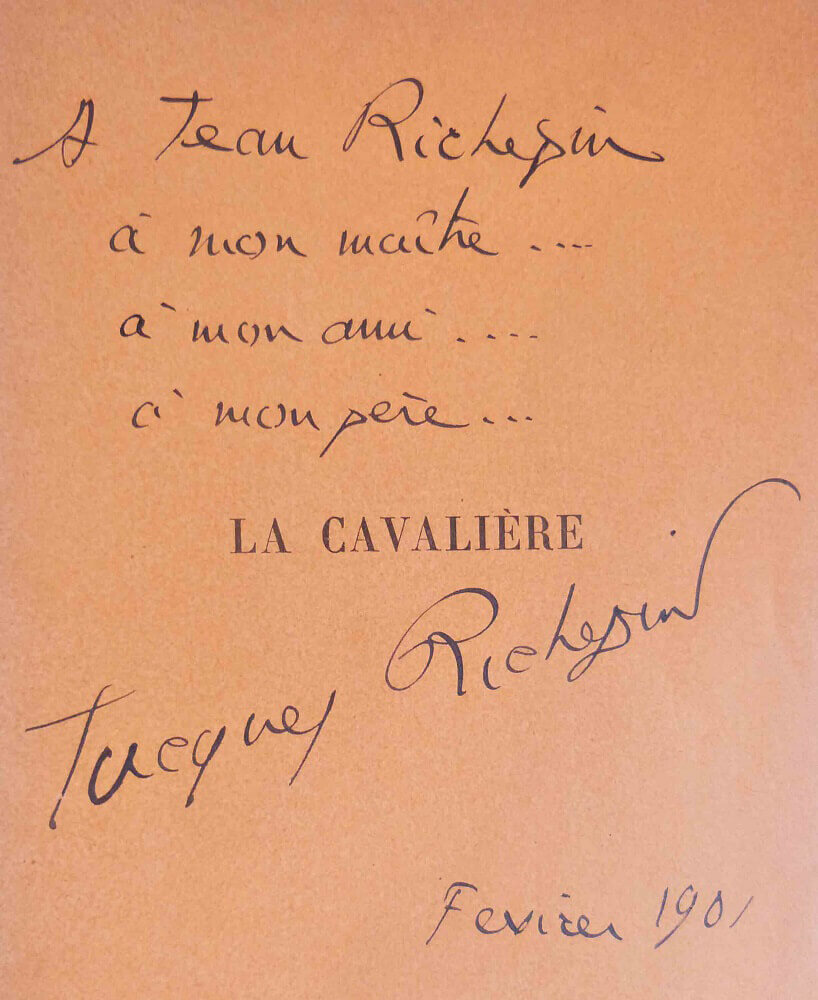 A Jean Richepin
à mon maître ....
à mon ami ....
à mon père ...
LA CAVALIÈRE
Jacques Richepin
Fevrier 1901